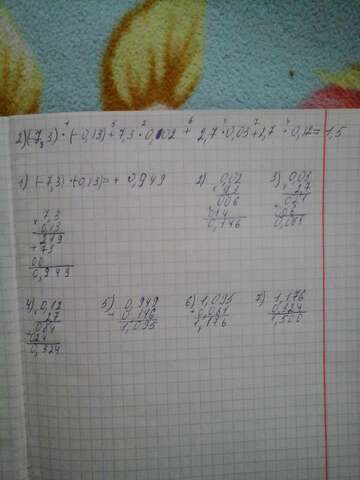 2)(-7,3)·(-0,13)+7,3·0,02+2,7·0,03+2,7·0,12=1,5
1) (-7,3)·(-0,13)=+0,949
7,3
0,13
219
+73
00
0,949
2) 0,02
7,3
006
014
0,146
3) 0,03
× 2,7
021
06
0,081
4) 0,12
2,7
084
024
0,324
5) 0,949
0,146
1,095
6) 1,095
0,081
1,176
7) 1,176
0,324
1,500